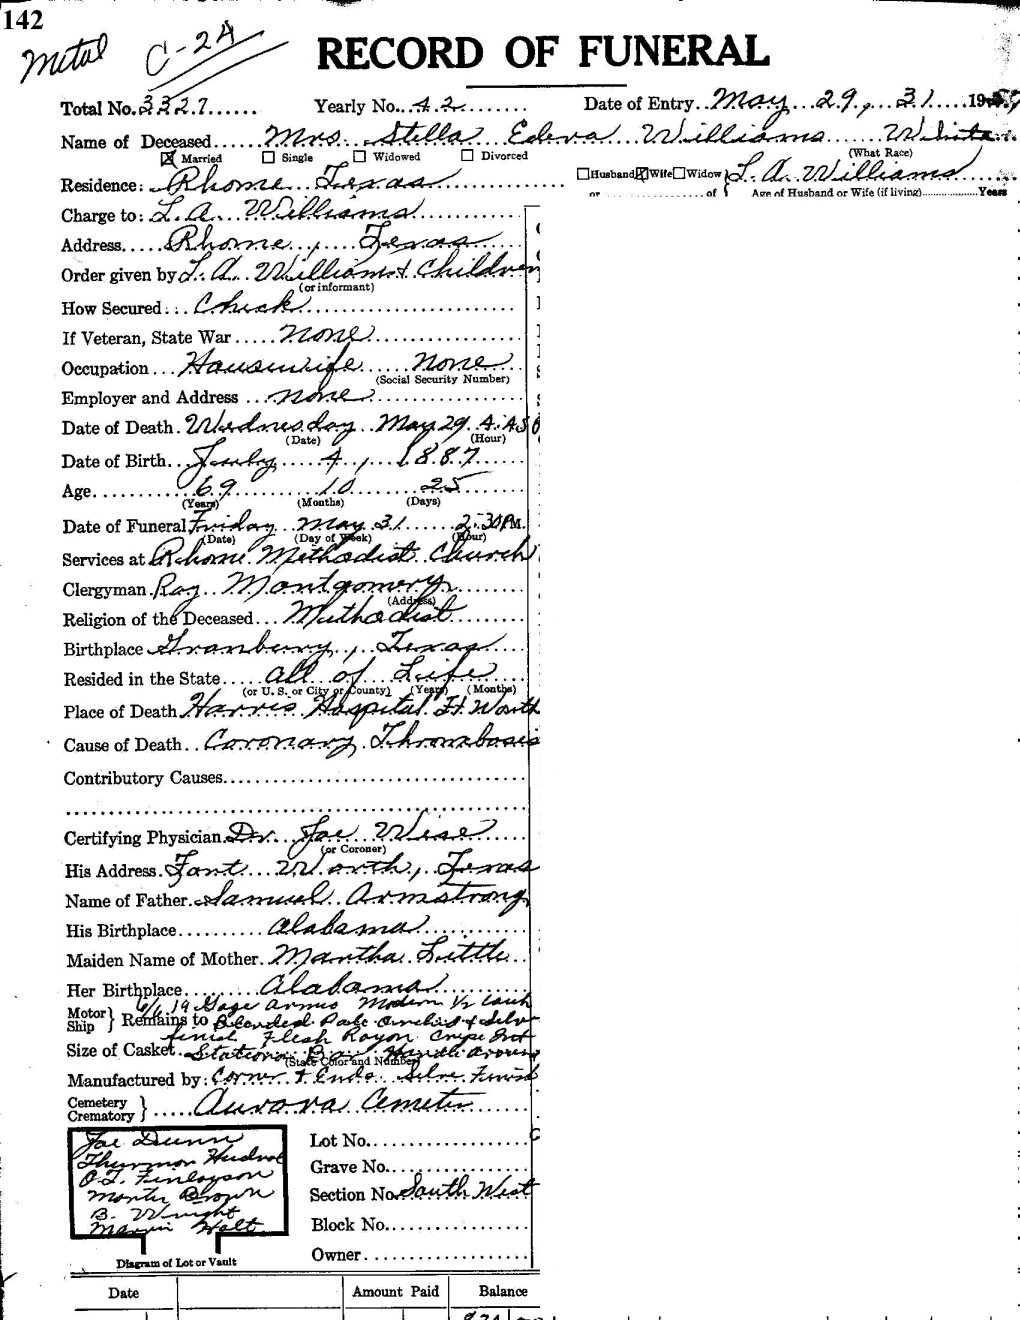 142
Metal C-24 RECORD OF FUNERAL
Total No. 3327...... Yearly No... 42........ Date of Entry.. May... 29., 31....19
Name of Deceased...... Mrs. Stella Edna Williams White
☒ Married ☐ Single ☐ Widowed ☐ Divorced (What Race)
Residence: Rhome Texas ☐Husband☒Wife☐Widow } L. A. Williams
or of Age of Husband or Wife (if living)..................Years
Charge to: L. A. Williams
Address..... Rhome, Texas
Order given by L. A. Williams & Children
(or informant)
How Secured... Check
If Veteran, State War..... none
Occupation... Housewife none
(Social Security Number)
Employer and Address... none
Date of Death. Wednesday May 29 4:45
(Date) (Hour)
Date of Birth.. July 4, 1887
Age............ 69 10 25
(Years) (Months) (Days)
Date of Funeral Friday May 31 2:30 PM.
(Date) (Day of Week) (Hour)
Services at Rhome Methodist Church
Clergyman. Ray Montgomery
(Address)
Religion of the Deceased... Methodist
Birthplace Granberry, Texas
Resided in the State..... all of Life
(or U. S. or City or County) (Years) (Months)
Place of Death Harris Hospital Ft Worth
Cause of Death.. Coronary Thrombosis
Contributory Causes
Certifying Physician Dr. Joe Wise
(or Coroner)
His Address. Fort Worth, Texas
Name of Father. Samuel Armstrong
His Birthplace.......... Alabama
Maiden Name of Mother. Martha Little
Her Birthplace........ Alabama
6/6 19 Gage Armco Modern 1/2 Couch
Motor Ship } Remains to Blended Pale Orchid & Silver
finish Flesh Rayon Crepe Int
Size of Casket. Stationary Bar Handle around
(State Color and Number)
Manufactured by: Corner & Ends Silver Finish
Cemetery Crematory }..... Aurora Cemeter
Joe Dunn Lot No.
Thurmon Grave No.
O. T. Finlayson Section No. South West
Monte Brown
B. Wright Block No.
Marvin Holt
Diagram of Lot or Vault Owner
Date Amount Paid Balance